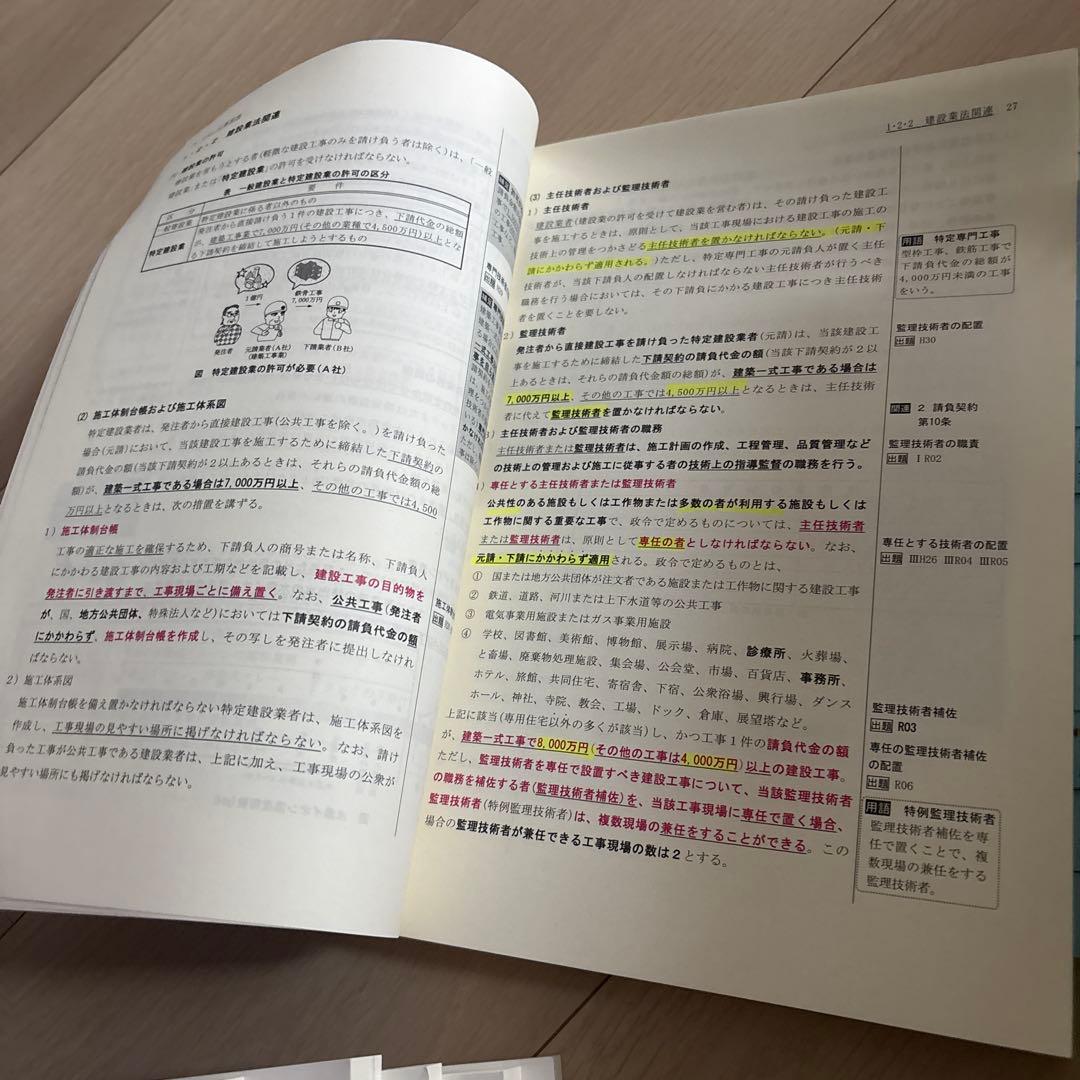 1・2・2 建設業法関連
建設業の許可
建設業を営もうとする者(軽微な建設工事のみを請け負う者は除く)は、「一般
建設業」または「特定建設業」の許可を受けなければならない。
表 一般建設業と特定建設業の許可の区分
区 分 要 件
一般建設業 特定建設業に係る者以外のもの
特定建設業 発注者から直接請け負う1件の建設工事につき、下請代金の総額
が、建築工事業で7,000万円(その他の業種で4,500万円)以上とな
る下請契約を締結して施工しようとするもの
1億円
鉄骨工事
7,000万円
発注者
元請業者(A社)
(建築工事業)
下請業者(B社)
図 特定建設業の許可が必要(A社)
(2) 施工体制台帳および施工体系図
特定建設業者は、発注者から直接建設工事(公共工事を除く。)を請け負った
場合(元請)において、当該建設工事を施工するために締結した下請契約の
請負代金の額(当該下請契約が2以上あるときは、それらの請負代金の総
額)が、建築一式工事である場合は7,000万円以上、その他の工事では4,500
万円以上となるときは、次の措置を講ずる。
1) 施工体制台帳
工事の適正な施工を確保するため、下請負人の商号または名称、下請負人
にかかわる建設工事の内容および工期などを記載し、建設工事の目的物を
発注者に引き渡すまで、工事現場ごとに備え置く。なお、公共工事(発注者
が、国、地方公共団体、特殊法人など)においては下請契約の請負代金の額
にかかわらず、施工体制台帳を作成し、その写しを発注者に提出しなけれ
ばならない。
2) 施工体系図
施工体制台帳を備え置かなければならない特定建設業者は、施工体系図を
作成し、工事現場の見やすい場所に掲げなければならない。なお、請け
負った工事が公共工事である建設業者は、上記に加え、工事現場の公衆が
見やすい場所にも掲げなければならない。
1・2・2 建設業法関連 27
(3) 主任技術者および監理技術者
1) 主任技術者
建設業者(建設業の許可を受けて建設業を営む者)は、その請け負った建設工
事を施工するときは、原則として、当該工事現場における建設工事の施工の
技術上の管理をつかさどる主任技術者を置かなければならない。(元請・下
請にかかわらず適用される。)ただし、特定専門工事の元請負人が置く主任
技術者が、当該下請負人の配置しなければならない主任技術者が行うべき
職務を行う場合においては、その下請負にかかる建設工事につき主任技術
者を置くことを要しない。
2) 監理技術者
発注者から直接建設工事を請け負った特定建設業者(元請)は、当該建設工
事を施工するために締結した下請契約の請負代金の額(当該下請契約が2以
上あるときは、それらの請負代金額の総額)が、建築一式工事である場合は
7,000万円以上、その他の工事では4,500万円以上となるときは、主任技術
者に代えて監理技術者を置かなければならない。
主任技術者および監理技術者の職務
主任技術者または監理技術者は、施工計画の作成、工程管理、品質管理など
の技術上の管理および施工に従事する者の技術上の指導監督の職務を行う。
専任とする主任技術者または監理技術者
公共性のある施設もしくは工作物または多数の者が利用する施設もしくは
工作物に関する重要な工事で、政令で定めるものについては、主任技術者
または監理技術者は、原則として専任の者としなければならない。なお、
元請・下請にかかわらず適用される。政令で定めるものとは、
① 国または地方公共団体が注文者である施設または工作物に関する建設工事
② 鉄道、道路、河川または上下水道等の公共工事
③ 電気事業用施設またはガス事業用施設
④ 学校、図書館、美術館、博物館、展示場、病院、診療所、火葬場、
と畜場、廃棄物処理施設、集会場、公会堂、市場、百貨店、事務所、
ホテル、旅館、共同住宅、寄宿舎、下宿、公衆浴場、興行場、ダンス
ホール、神社、寺院、教会、工場、ドック、倉庫、展望塔など。
上記に該当(専用住宅以外の多くが該当)し、かつ工事1件の請負代金の額
が、建築一式工事で8,000万円(その他の工事は4,000万円)以上の建設工事。
ただし、監理技術者を専任で設置すべき建設工事について、当該監理技術者
の職務を補佐する者(監理技術者補佐)を、当該工事現場に専任で置く場合、
監理技術者(特例監理技術者)は、複数現場の兼任をすることができる。この
場合の監理技術者が兼任できる工事現場の数は2とする。
用語 特定専門工事
型枠工事、鉄筋工事で
下請負代金の総額が
4,000万円未満の工事
をいう。
監理技術者の配置
出題 H30
関連 2 請負契約
第10条
監理技術者の職責
出題 I R02
専任とする技術者の配置
出題 ⅢH26 ⅢR04 ⅢR05
監理技術者補佐
出題 R03
専任の監理技術者補佐
の配置
出題 R06
用語 特例監理技術者
監理技術者補佐を専
任で置くことで、複
数現場の兼任をする
監理技術者。